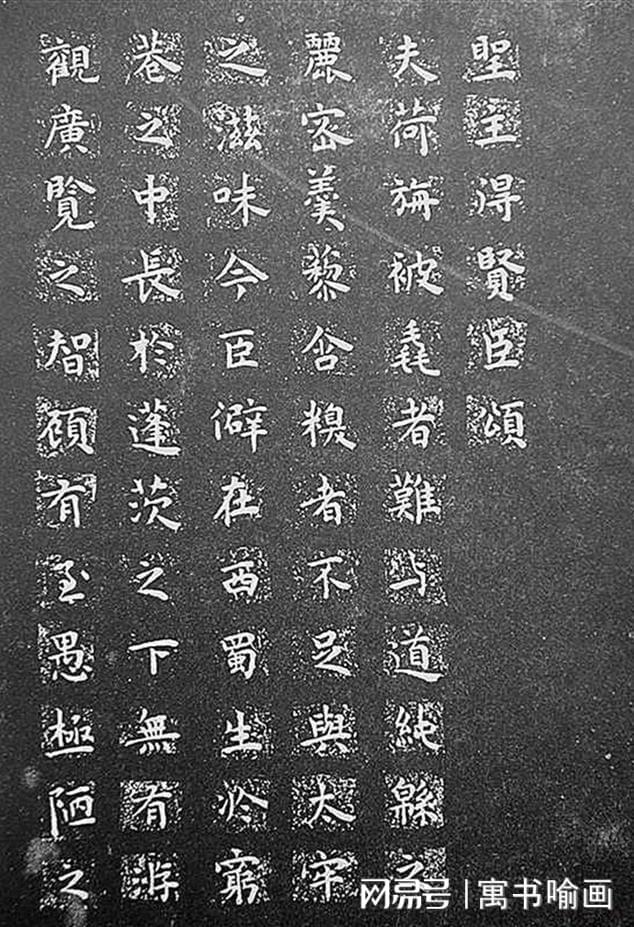 聖主得賢臣頌
夫荷旃被毳者難与道純緜之
麗密羹藜含糗者不足與太牢
之滋味今臣僻在西蜀生於窮
巷之中長於蓬茨之下無有游
觀廣覽之智顧有至愚極陋之
网易号 | 寓书喻画